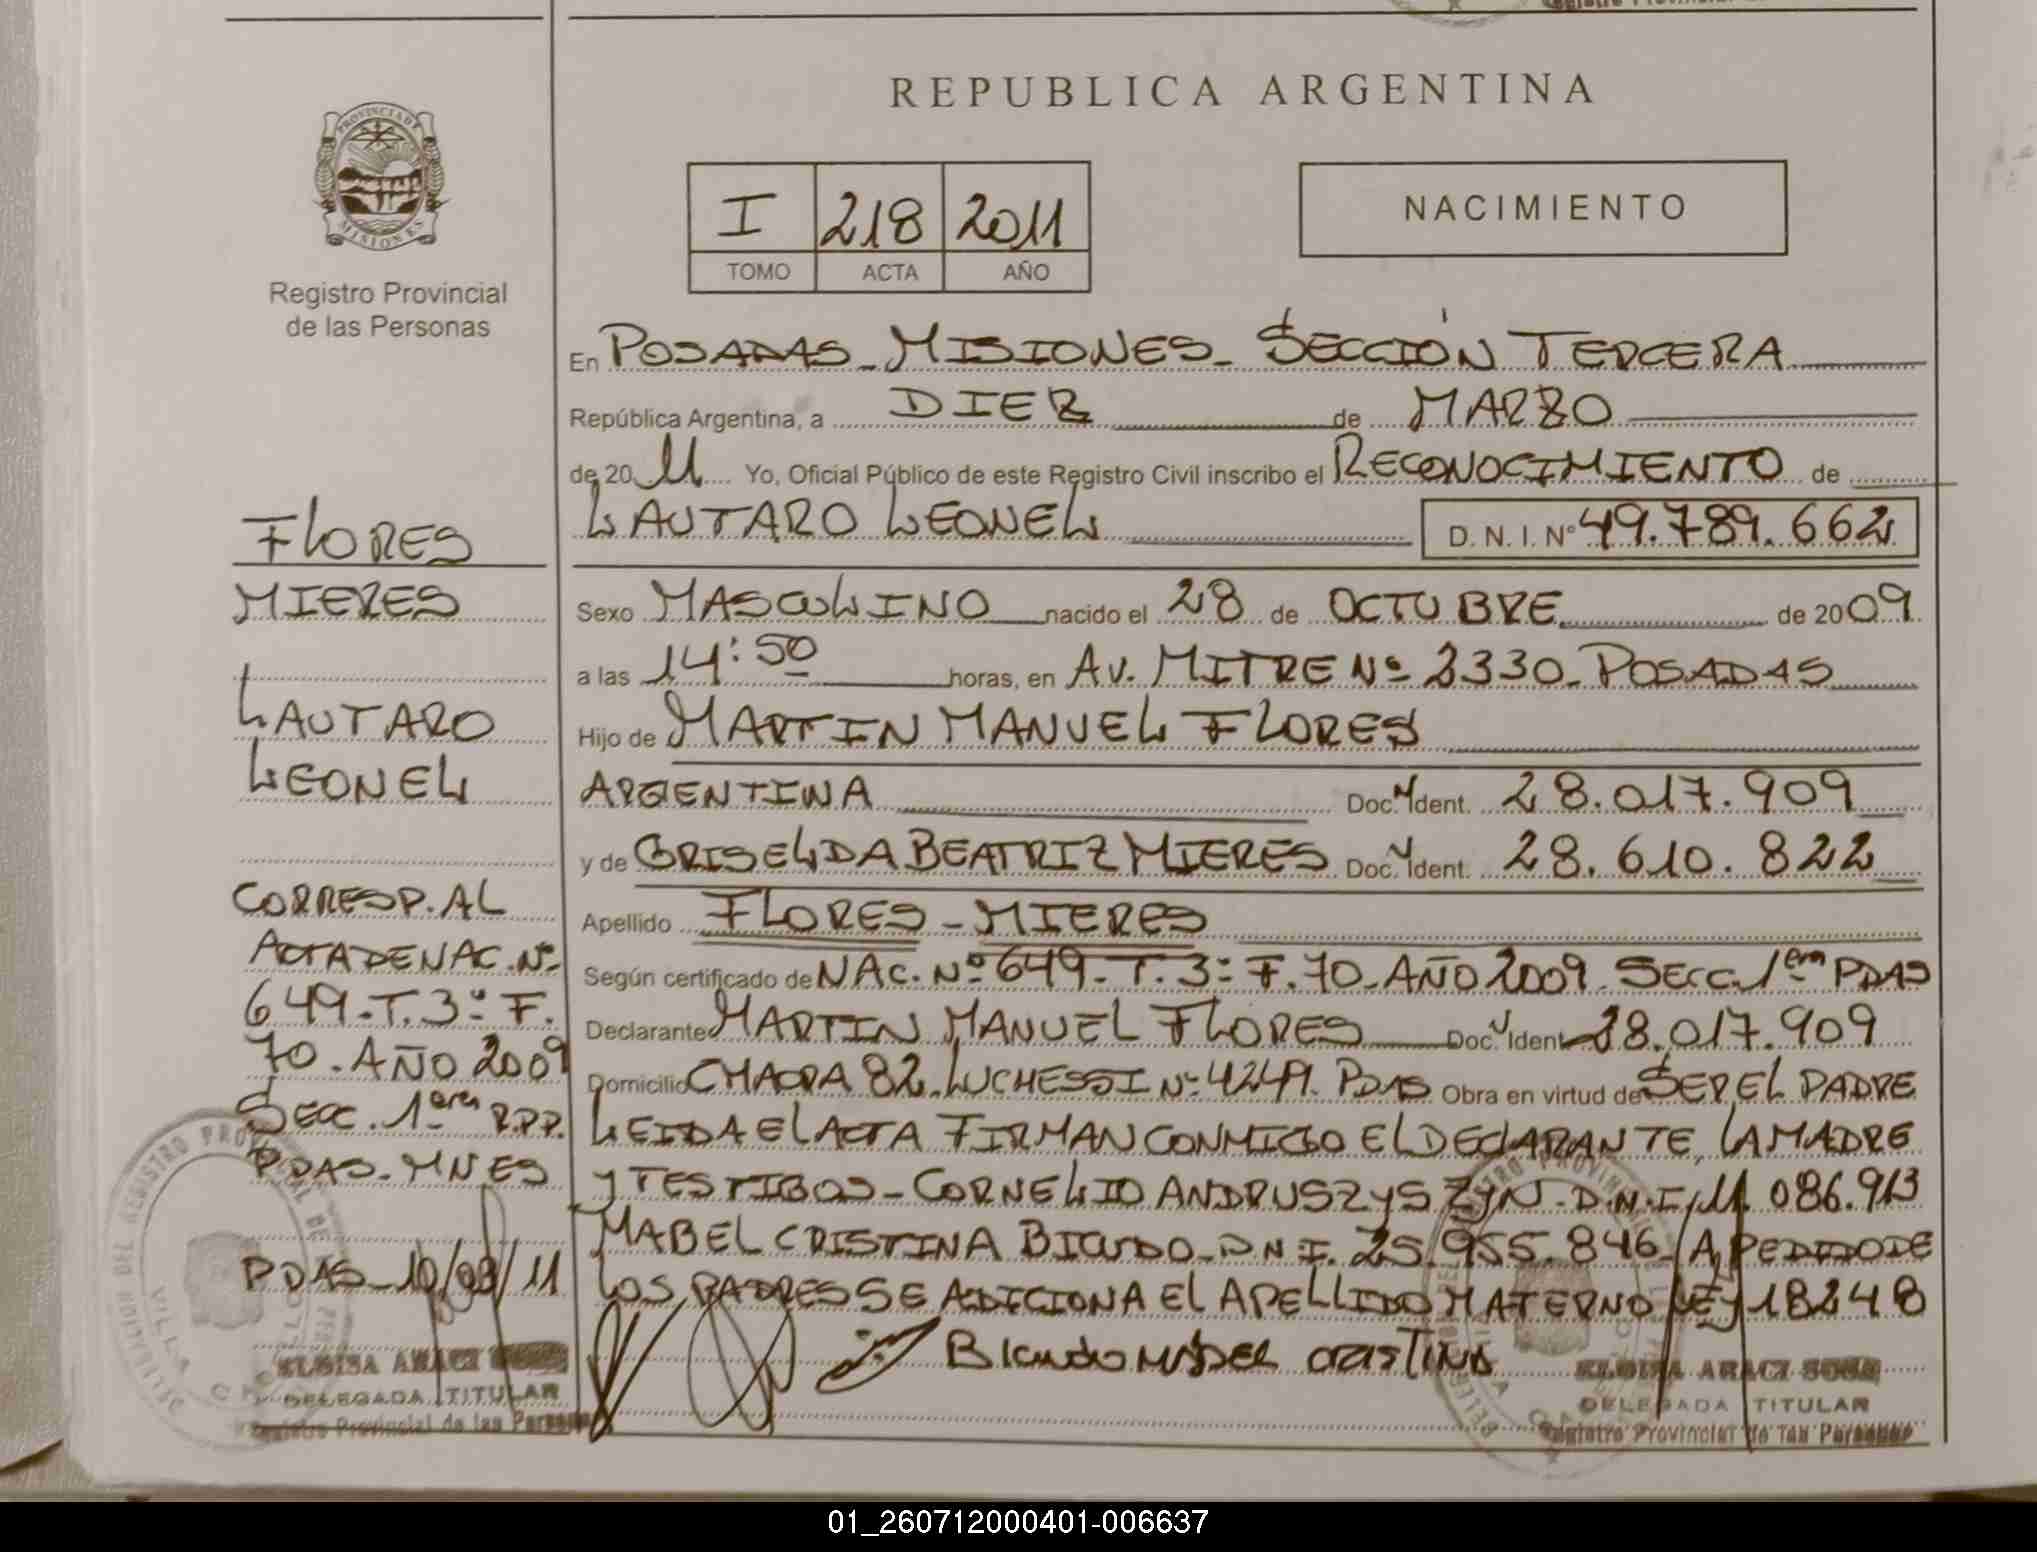 REPUBLICA ARGENTINA
PROVINCIA DE
MISIONES
Registro Provincial
de las Personas
I 218 2011
TOMO ACTA AÑO
NACIMIENTO
En POSADAS - MISIONES - SECCIÓN TERCERA
República Argentina, a DIEZ de MARZO
de 2011 Yo, Oficial Público de este Registro Civil inscribo el RECONOCIMIENTO de
LAUTARO LEONEL D. N. I. Nº 49.789.662
Sexo MASCULINO nacido el 28 de OCTUBRE de 2009
a las 14:50 horas, en AV. MITRE Nº 2330 - POSADAS
Hijo de MARTIN MANUEL FLORES
ARGENTINA Doc. Ident. 28.017.909
y de GRISELDA BEATRIZ MIERES Doc. Ident. 28.610.822
Apellido FLORES - MIERES
Según certificado de NAC. Nº 649 - T. 3º F. 70 - AÑO 2009 - SECC. 1era PDAS
Declarante MARTIN MANUEL FLORES Doc. Ident. 28.017.909
Domicilio CHACRA 82. LUCHESSI Nº 4249. PDAS Obra en virtud de SER EL PADRE
LEIDA EL ACTA FIRMAN CONMIGO EL DECLARANTE, LA MADRE
Y TESTIGOS - CORNELIO ANDRUSZYSZYN - D.N.I. 11.086.913
MABEL CRISTINA BICUDO - D.N.I. 25.955.846 / A PEDIDO DE
LOS PADRES SE ADICIONA EL APELLIDO MATERNO LEY 18248
Bicudo Mabel Cristina
ELOISA ARACI SOSA
DELEGADA TITULAR
Registro Provincial de las Personas
FLORES
MIERES
LAUTARO
LEONEL
CORRESP. AL
ACTA DE NAC. Nº
649 - T. 3º F.
70 - AÑO 2009
SECC. 1era R.P.P.
PDAS - MNES
PDAS - 10/03/11
ELOISA ARACI SOSA
DELEGADA TITULAR
Registro Provincial de las Personas
01_260712000401-006637